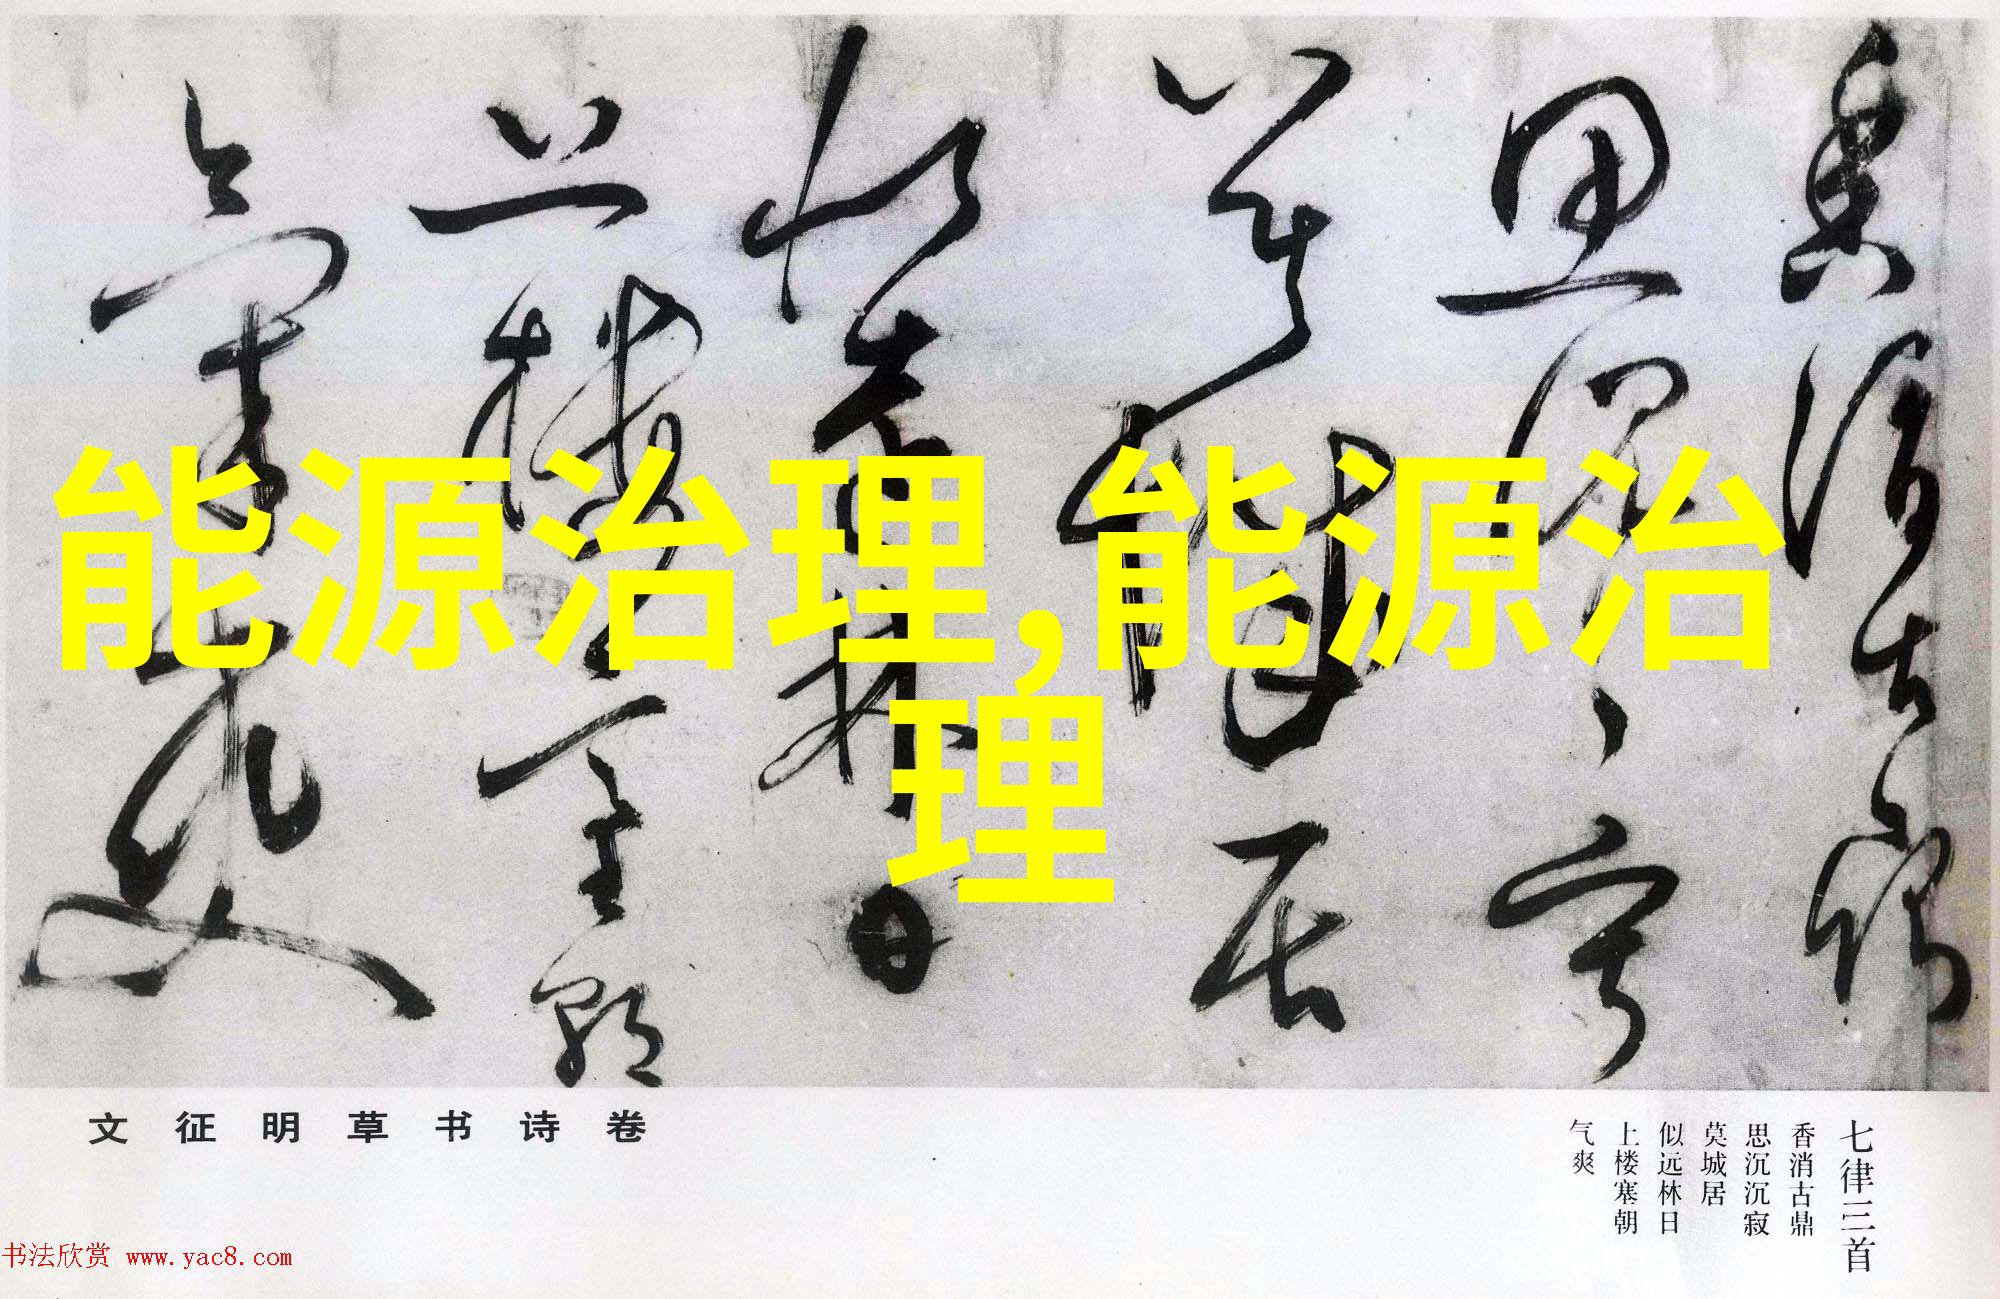 能源治理,能源治
理
文征明草书诗卷
七律三首
香消古鼎
思沉沉寂
莫城居
似远林日
上楼塞朝
气爽
书法欣赏 www.yac8.com